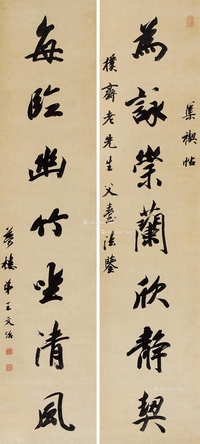 集禊帖
為詠崇蘭欣靜契
樸齋老先生父臺法鑒
每臨幽竹坐清風
夢樓弟王文治